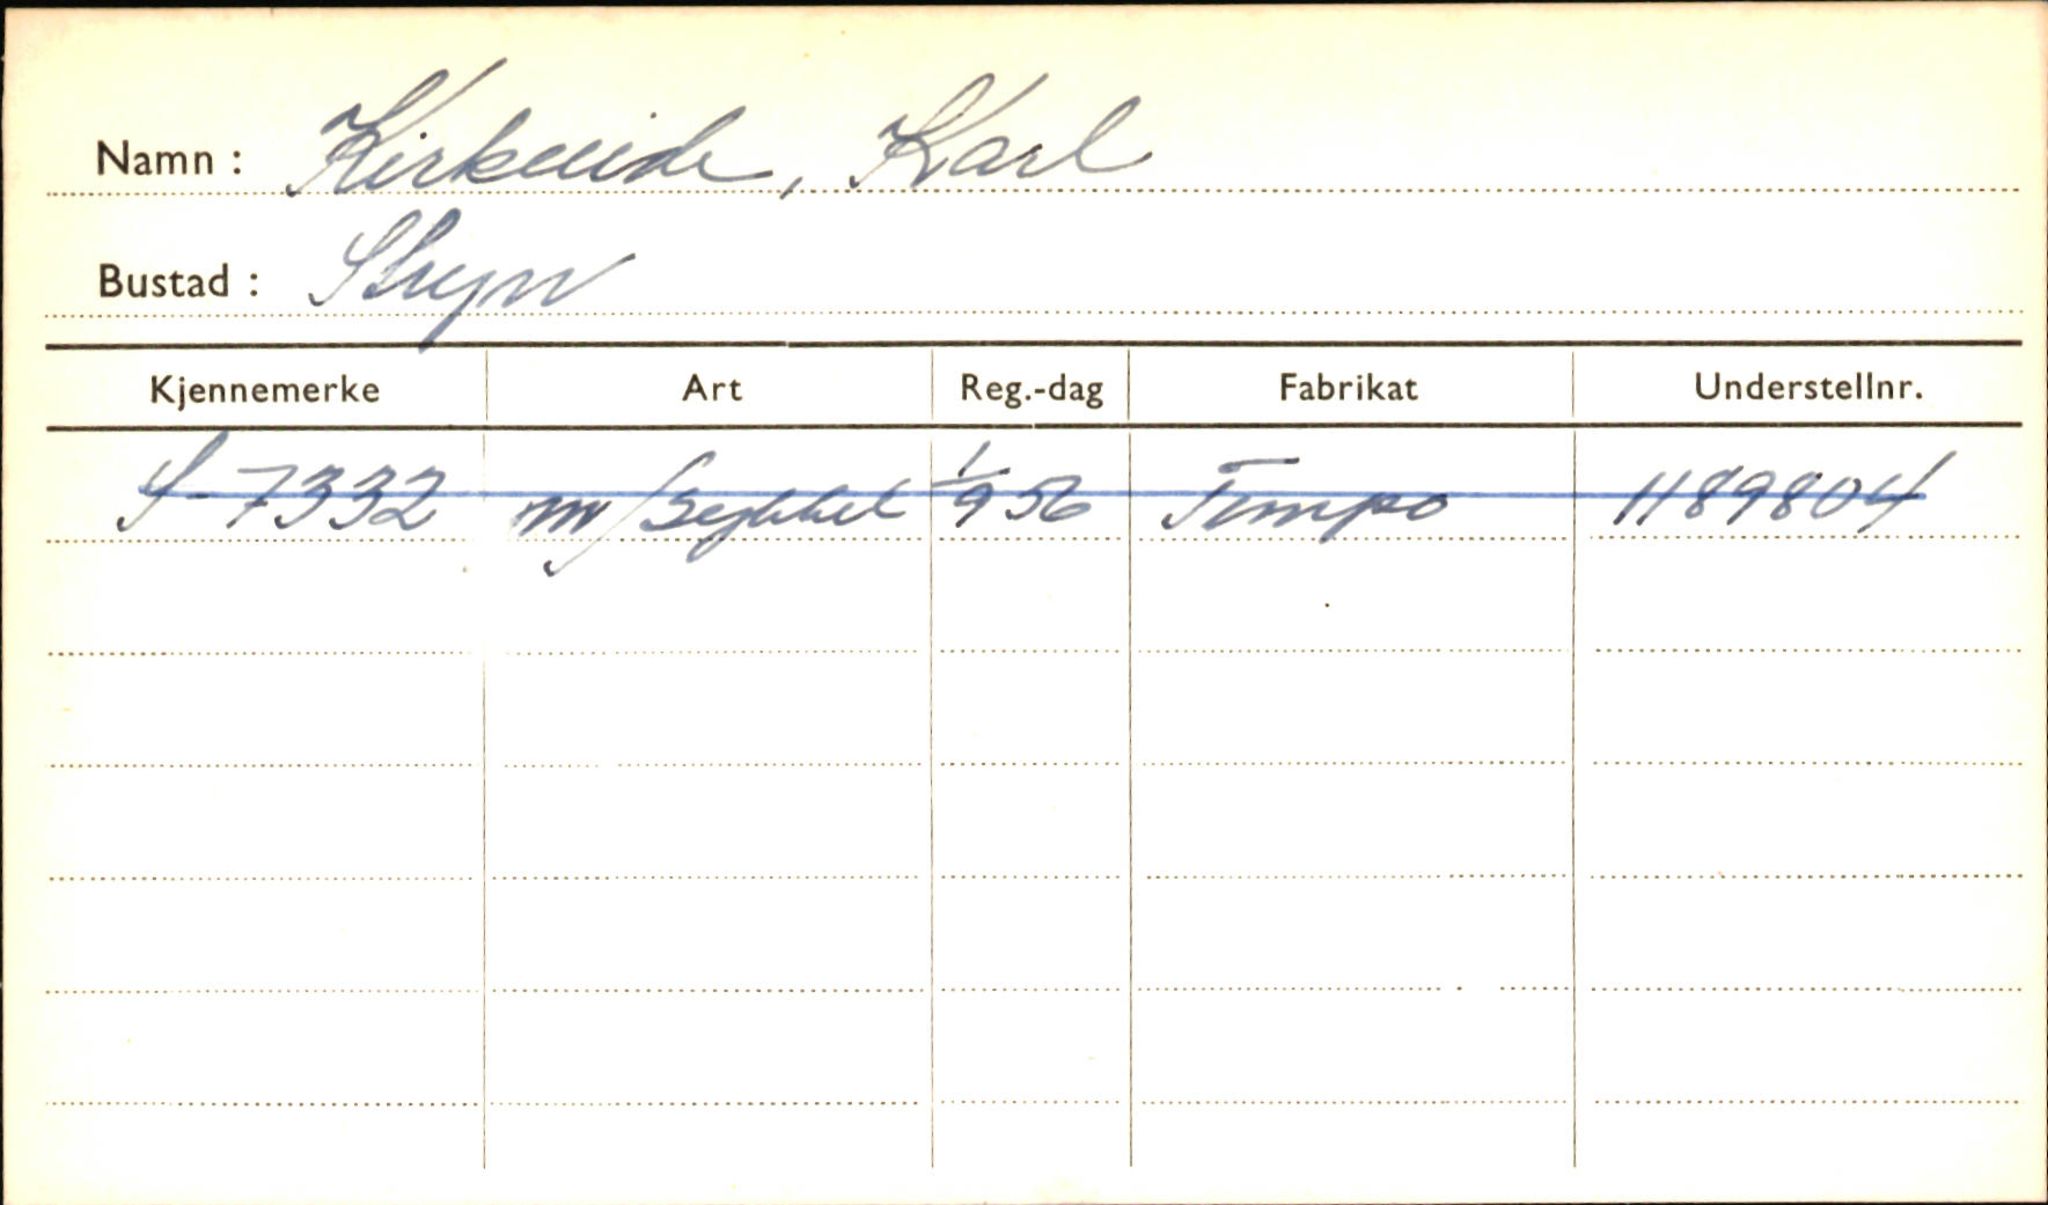 Namn : Kirkeeide, Karl
Bustad : Stryn
Kjennemerke Art Reg.-dag Fabrikat Understellnr.
S-7332 m/sykkel 1/9 56 Tempo 1189804